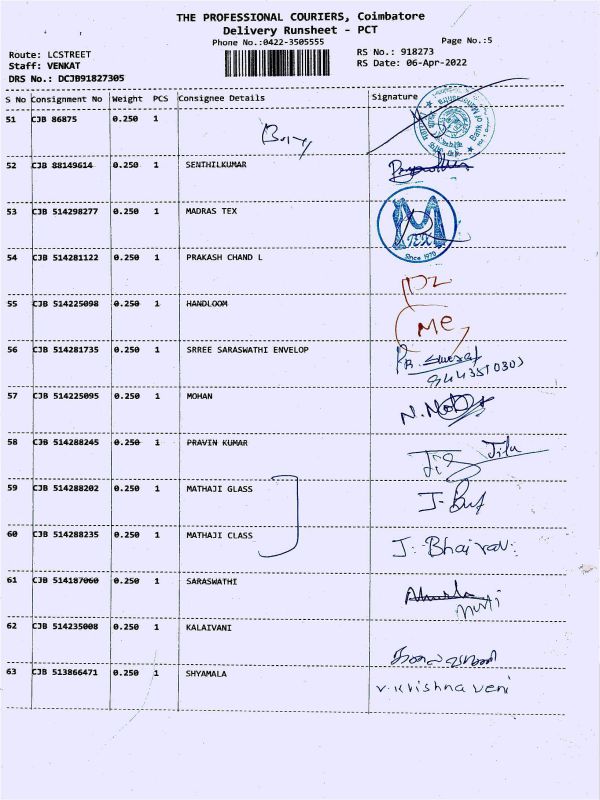 THE PROFESSIONAL COURIERS, Coimbatore
Delivery Runsheet - PCT
Phone No.:0422-3505555
Page No.:5
Route: LCSTREET
RS No.: 918273
Staff: VENKAT
RS Date: 06-Apr-2022
DRS No.: DCJB91827305
S No Consignment No Weight PCS Consignee Details Signature
51 CJB 86875 0.250 1
52 CJB 88149614 0.250 1 SENTHILKUMAR
53 CJB 514298277 0.250 1 MADRAS TEX
M TEX
Since 1970
54 CJB 514281122 0.250 1 PRAKASH CHAND L
55 CJB 514225098 0.250 1 HANDLOOM
ME
56 CJB 514281735 0.250 1 SRREE SARASWATHI ENVELOP
57 CJB 514225095 0.250 1 MOHAN
58 CJB 514288245 0.250 1 PRAVIN KUMAR
Jitu
59 CJB 514288202 0.250 1 MATHAJI GLASS
60 CJB 514288235 0.250 1 MATHAJI CLASS
J. Bhairav
61 CJB 514187060 0.250 1 SARASWATHI
62 CJB 514235008 0.250 1 KALAIVANI
63 CJB 513866471 0.250 1 SHYAMALA
V. Krishna veni